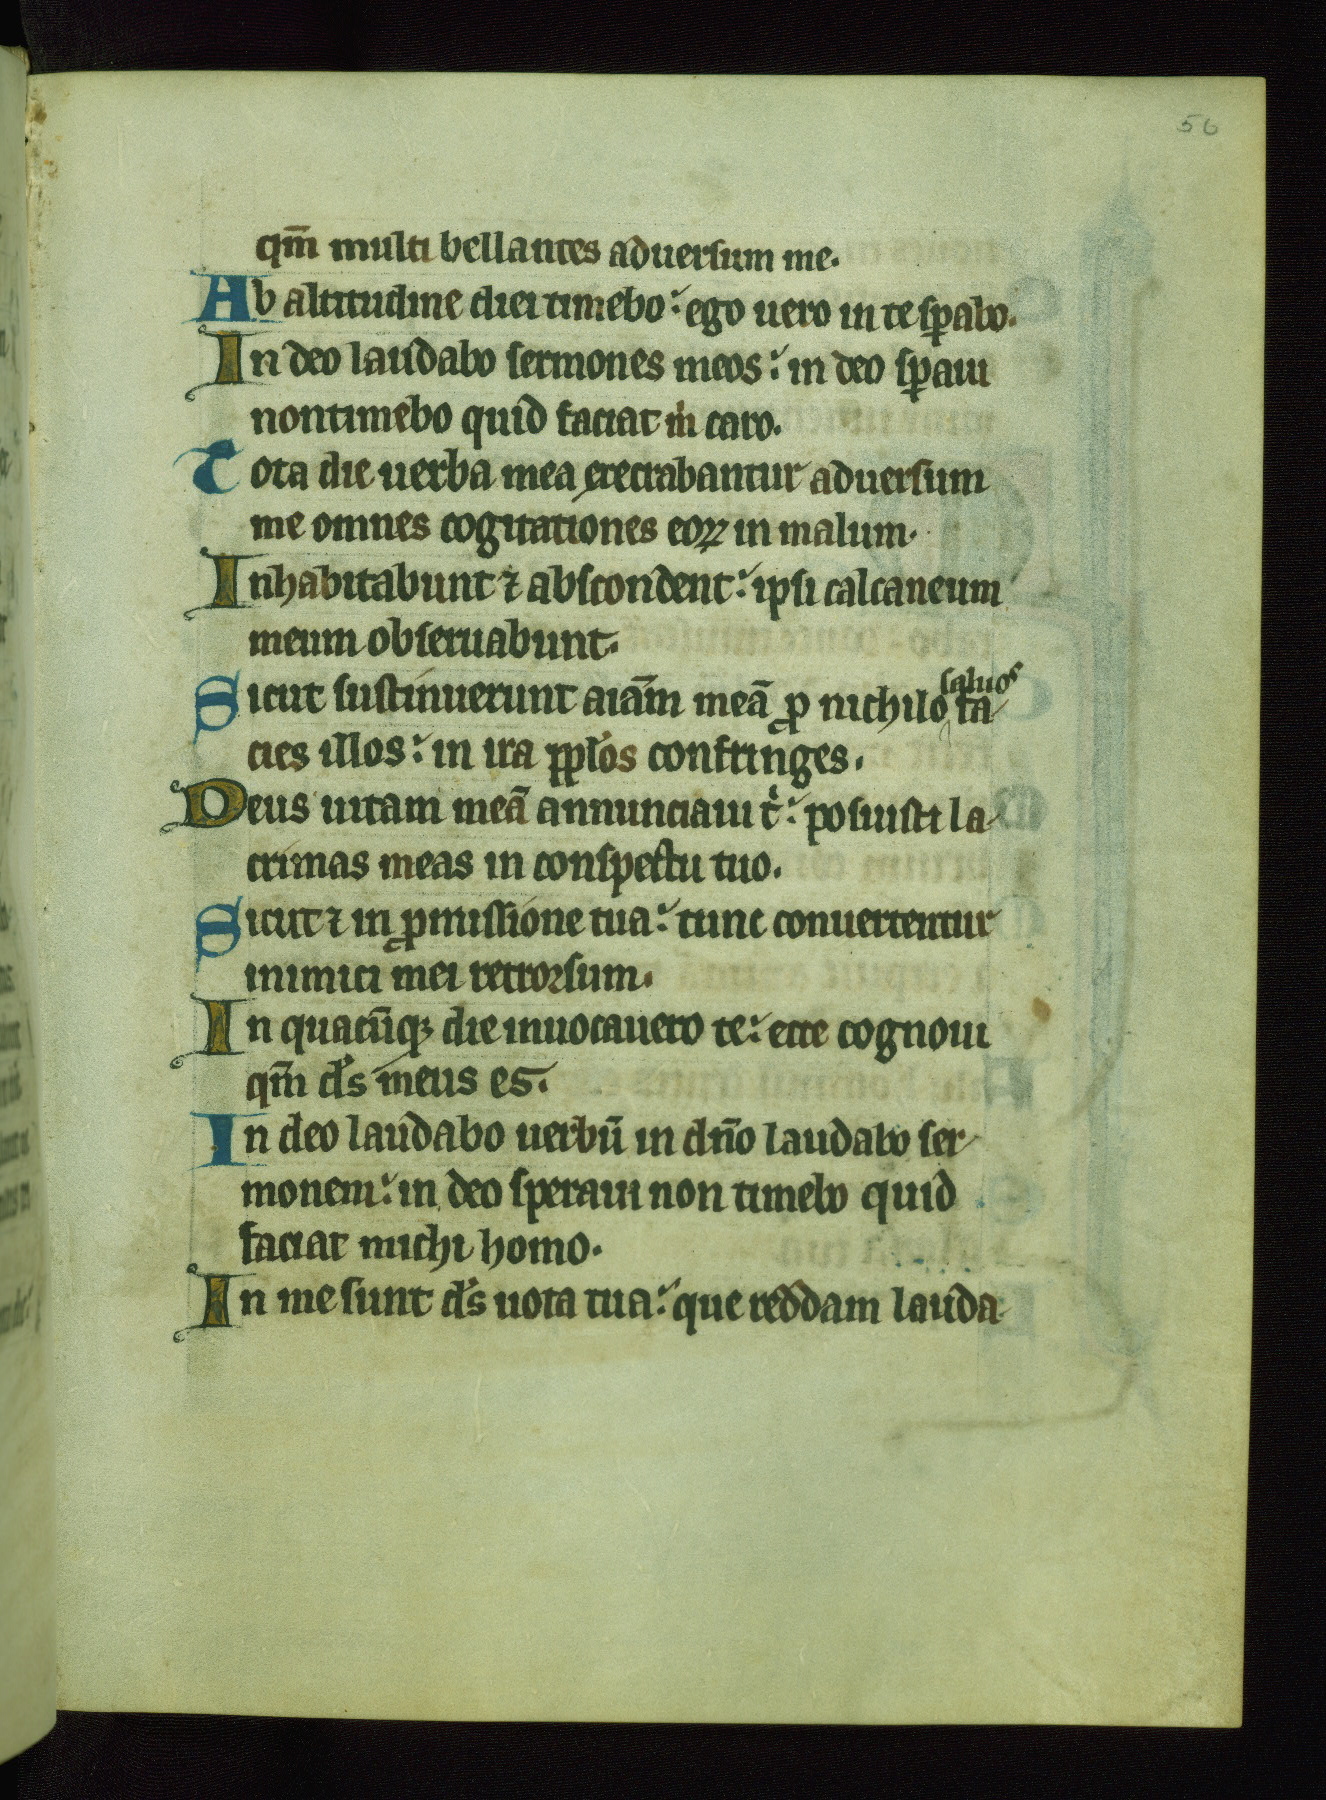 56
qm̄ multi bellantes aduersum me.
Ab altitudine diei timebo: ego uero in te sꝑabo.
In deo laudabo sermones meos: in deo sꝑaui
non timebo quid faciat m̄ caro.
Tota die uerba mea execrabantur aduersum
me omnes cogitationes eoꝝ in malum.
Inhabitabunt ⁊ abscondent: ipsi calcaneum
meum obseruabunt.
saluos
Sicut sustinuerunt aiām meā ꝓ nichilo fa
cies illos: in ira pp̄los confringes.
Deus uitam meā annunciaui t̾: posuisti la
crimas meas in conspectu tuo.
Sicut ⁊ in ꝓmissione tua: tunc conuertentur
inimici mei retrorsum.
In quacūqꝫ die inuocauero te: ecce cognoui
qm̄ ds̄ meus es.
In deo laudabo uerbū in dn̄o laudabo ser
monem: in deo speraui non timebo quid
faciat michi homo.
In me sunt ds̄ uota tua: que reddam lauda